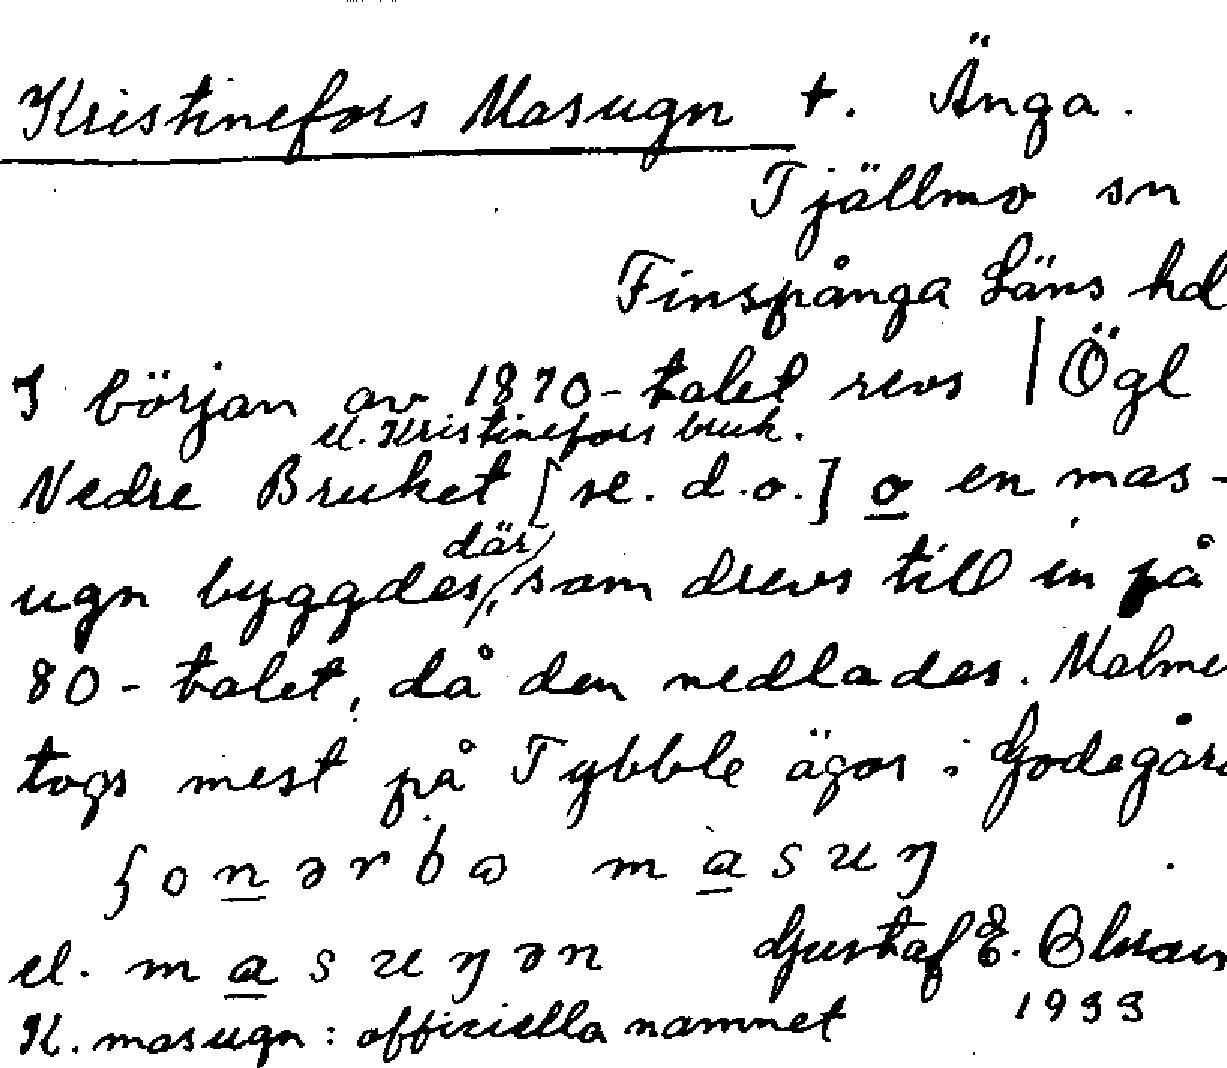 Kristinefors Masugn t. Änga.
Tjällmo sn
Finspånga Läns hd
I början av 1870-talet revs | Ögl
el. Kristinefors bruk.
Nedre Bruket [se. d.o.] o en mas-
där
ugn byggdes, som drevs till in på
80-talet, då den nedlades. Malme
togs mest på Tybble ägor i Godegård
el. masuŋən
Gustaf E. Olsson
1933
K. masugn: officiella namnet